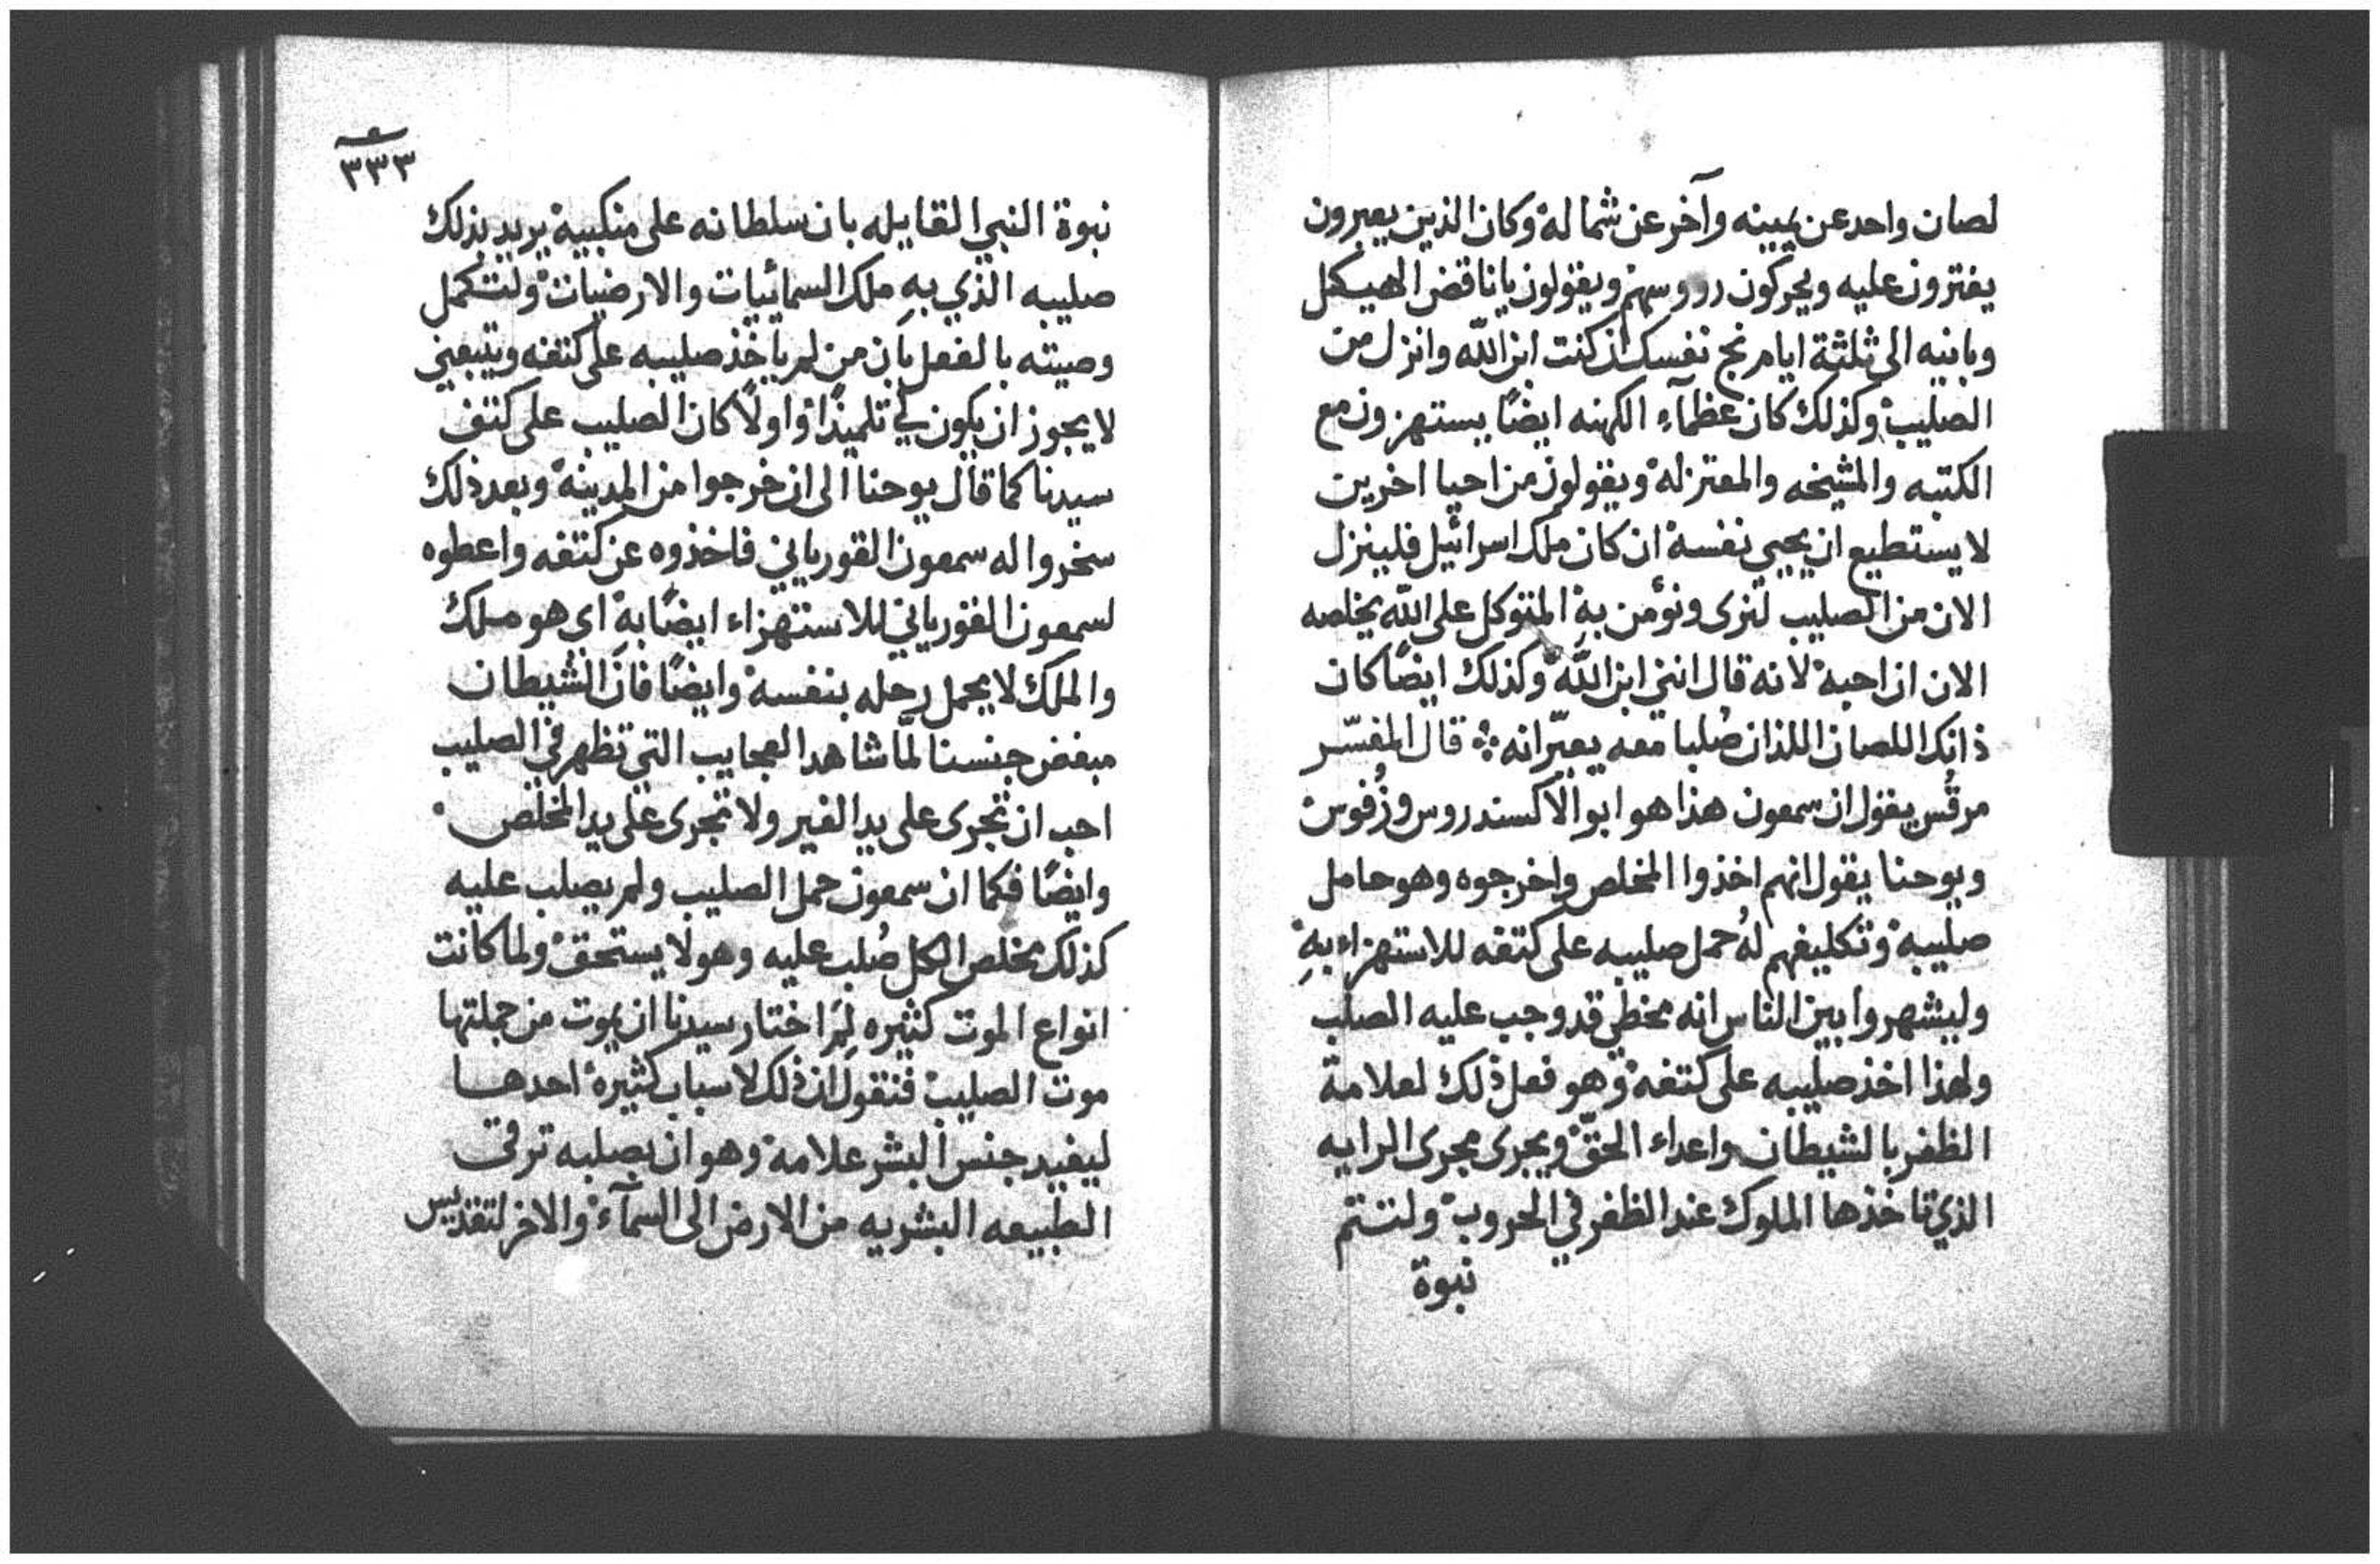 لصان واحد عن يمينه وآخر عن شماله وكان الذين يعبرون
يفترون عليه ويحركون رووسهم ويقولون يا ناقض الهيكل
وبانيه الى ثلثة ايام نج نفسك ان كنت ابن الله وانزل من
الصليب وكذلك كان عظمآء الكهنه ايضًا يستهزون مع
الكتبه والمشيخه والمعتزله ويقولون من احيا اخرين
لا يستطيع ان يحيي نفسه ان كان ملك اسرائيل فلينزل
الان من الصليب لنرى ونؤمن به المتوكل على الله يخلصه
الان ان احبه لانه قال انني ابن الله وكذلك ايضًا كان
ذانك اللصان اللذان صُلبا معه يعيّرانه قال المفسّر
مرقُس يقول ان سمعون هذا هو ابو الاكسندروس وزُفوس
ويوحنا يقول انهم اخذوا المخلص واخرجوه وهو حامل
صليبه وتكليفهم لهُ حمل صليبه على كتفه للاستهزاء بهِ
وليشهروا بين الناس انه مخطي قد وجب عليه الصلب
ولهذا اخذ صليبه على كتفه وهو فعل ذلك لعلامة
الظفر بالشيطان واعداء الحقّ ويجرى مجرى الرايه
الذي تاخذها الملوك عند الظفر في الحروب ولتتم
نبوة
٣٣٣
نبوة النبي القايله بان سلطانه على منكبيه يريد بذلك
صليبه الذي بهِ ملك السمائيات والارضيات ولتكمل
وصيته بالفعل بان من لم ياخذ صليبه على كتفه ويتبعني
لا يجوز ان يكون لي تلميذًا واولًا كان الصليب على كتف
سيدنا كما قال يوحنا الى ان خرجوا من المدينه وبعد ذلك
سخروا له سمعون القورياني فاخذوه عن كتفه واعطوه
لسمعون القورياني للاستهزاء ايضًا به اي هو ملك
والملك لا يحمل رحله بنفسه وايضًا فان الشيطان
مبغض جنسنا لمّا شاهد العجايب التي تظهر في الصليب
احب ان تجرى على يد الغير ولا تجرى على يد المخلص
وايضًا فكما ان سمعون حمل الصليب ولم يصلب عليه
كذلك مخلص الكل صُلب عليه وهو لا يستحق ولما كانت
انواع الموت كثيره لِمَ اختار سيدنا ان يموت من جملتها
موت الصليب فنقول ان ذلك لاسباب كثيره احدها
ليفيد جنس البشر علامه وهو ان بصلبه ترقت
الطبيعه البشريه من الارض الى السمآء والاخر لتقديس